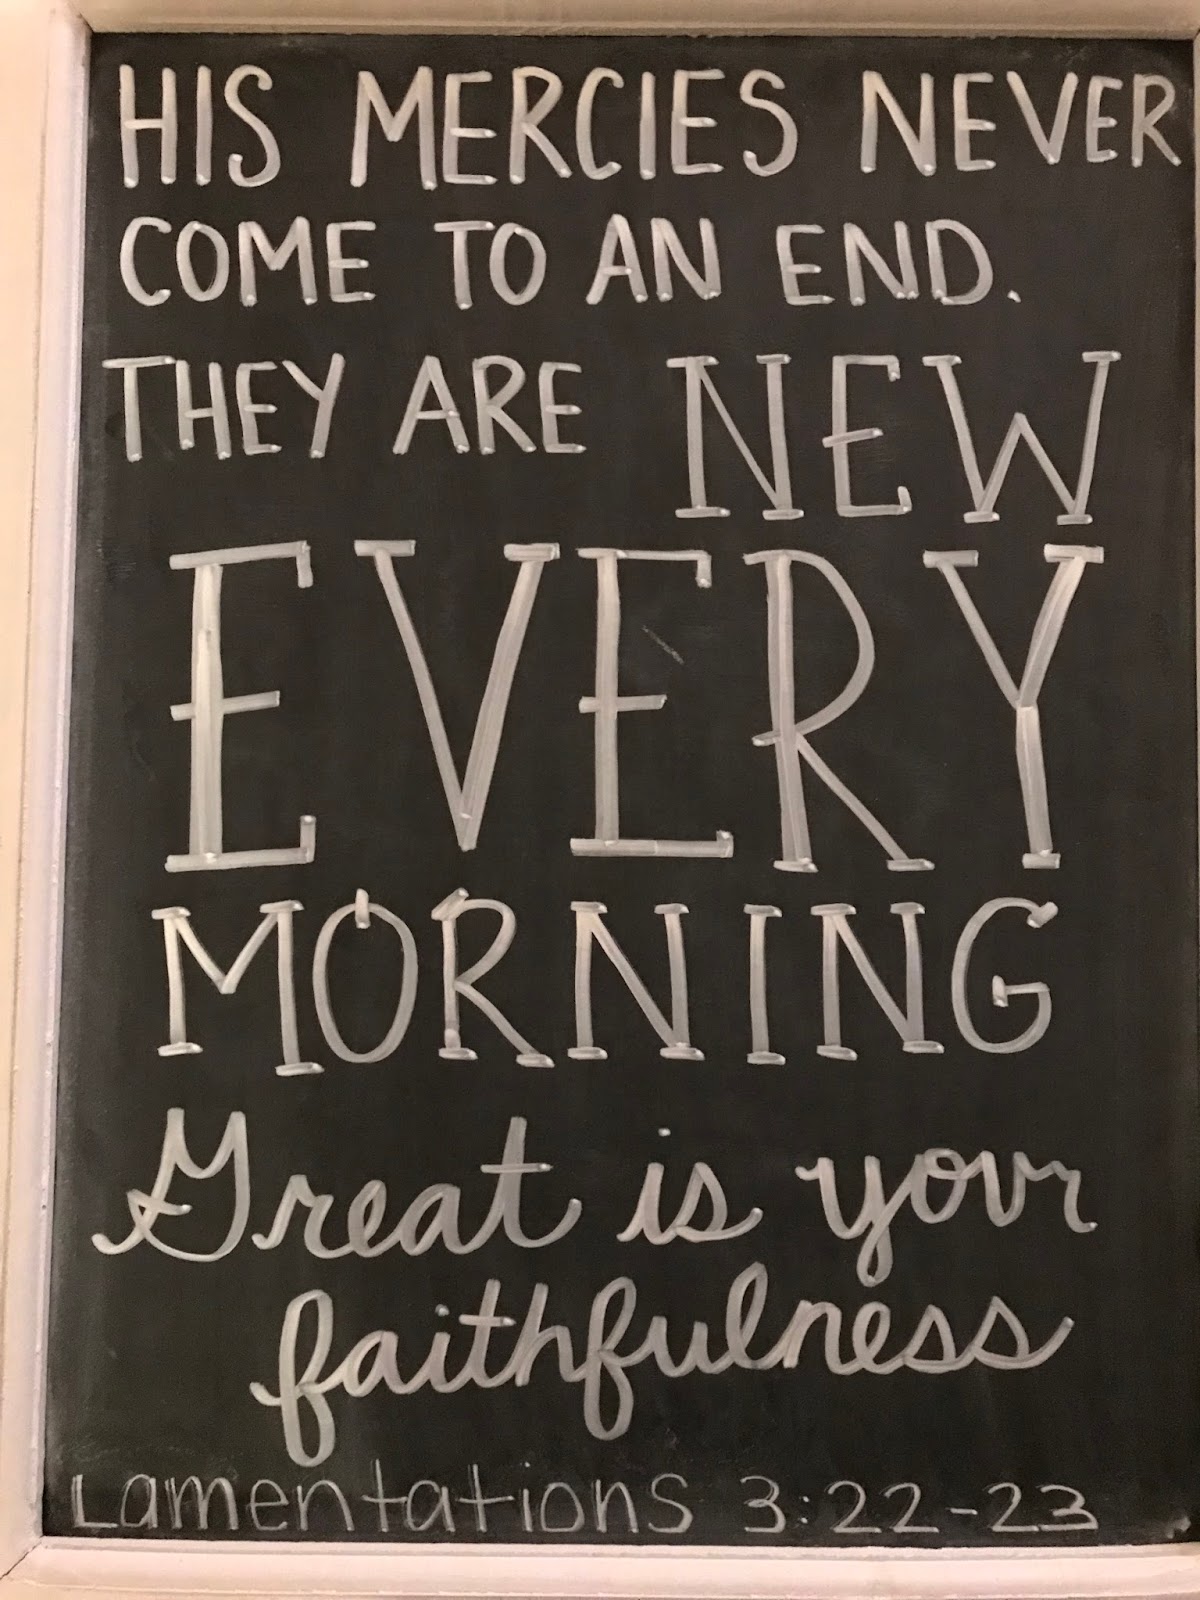 HIS MERCIES NEVER
COME TO AN END.
THEY ARE NEW
EVERY
MORNING
Great is your
faithfulness
Lamentations 3:22-23